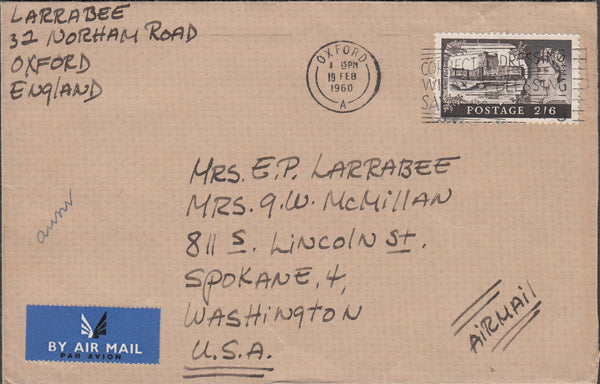 LARRABEE
32 NORHAM ROAD
OXFORD
ENGLAND
OXFORD
15PM
19 FEB
1960
A
POSTAGE 2/6
MRS. E.P. LARRABEE
MRS. G.W. McMILLAN
811 S. LINCOLN St.
SPOKANE, 4,
WASHINGTON
U.S.A.
AIRMAIL
BY AIR MAIL
PAR AVION